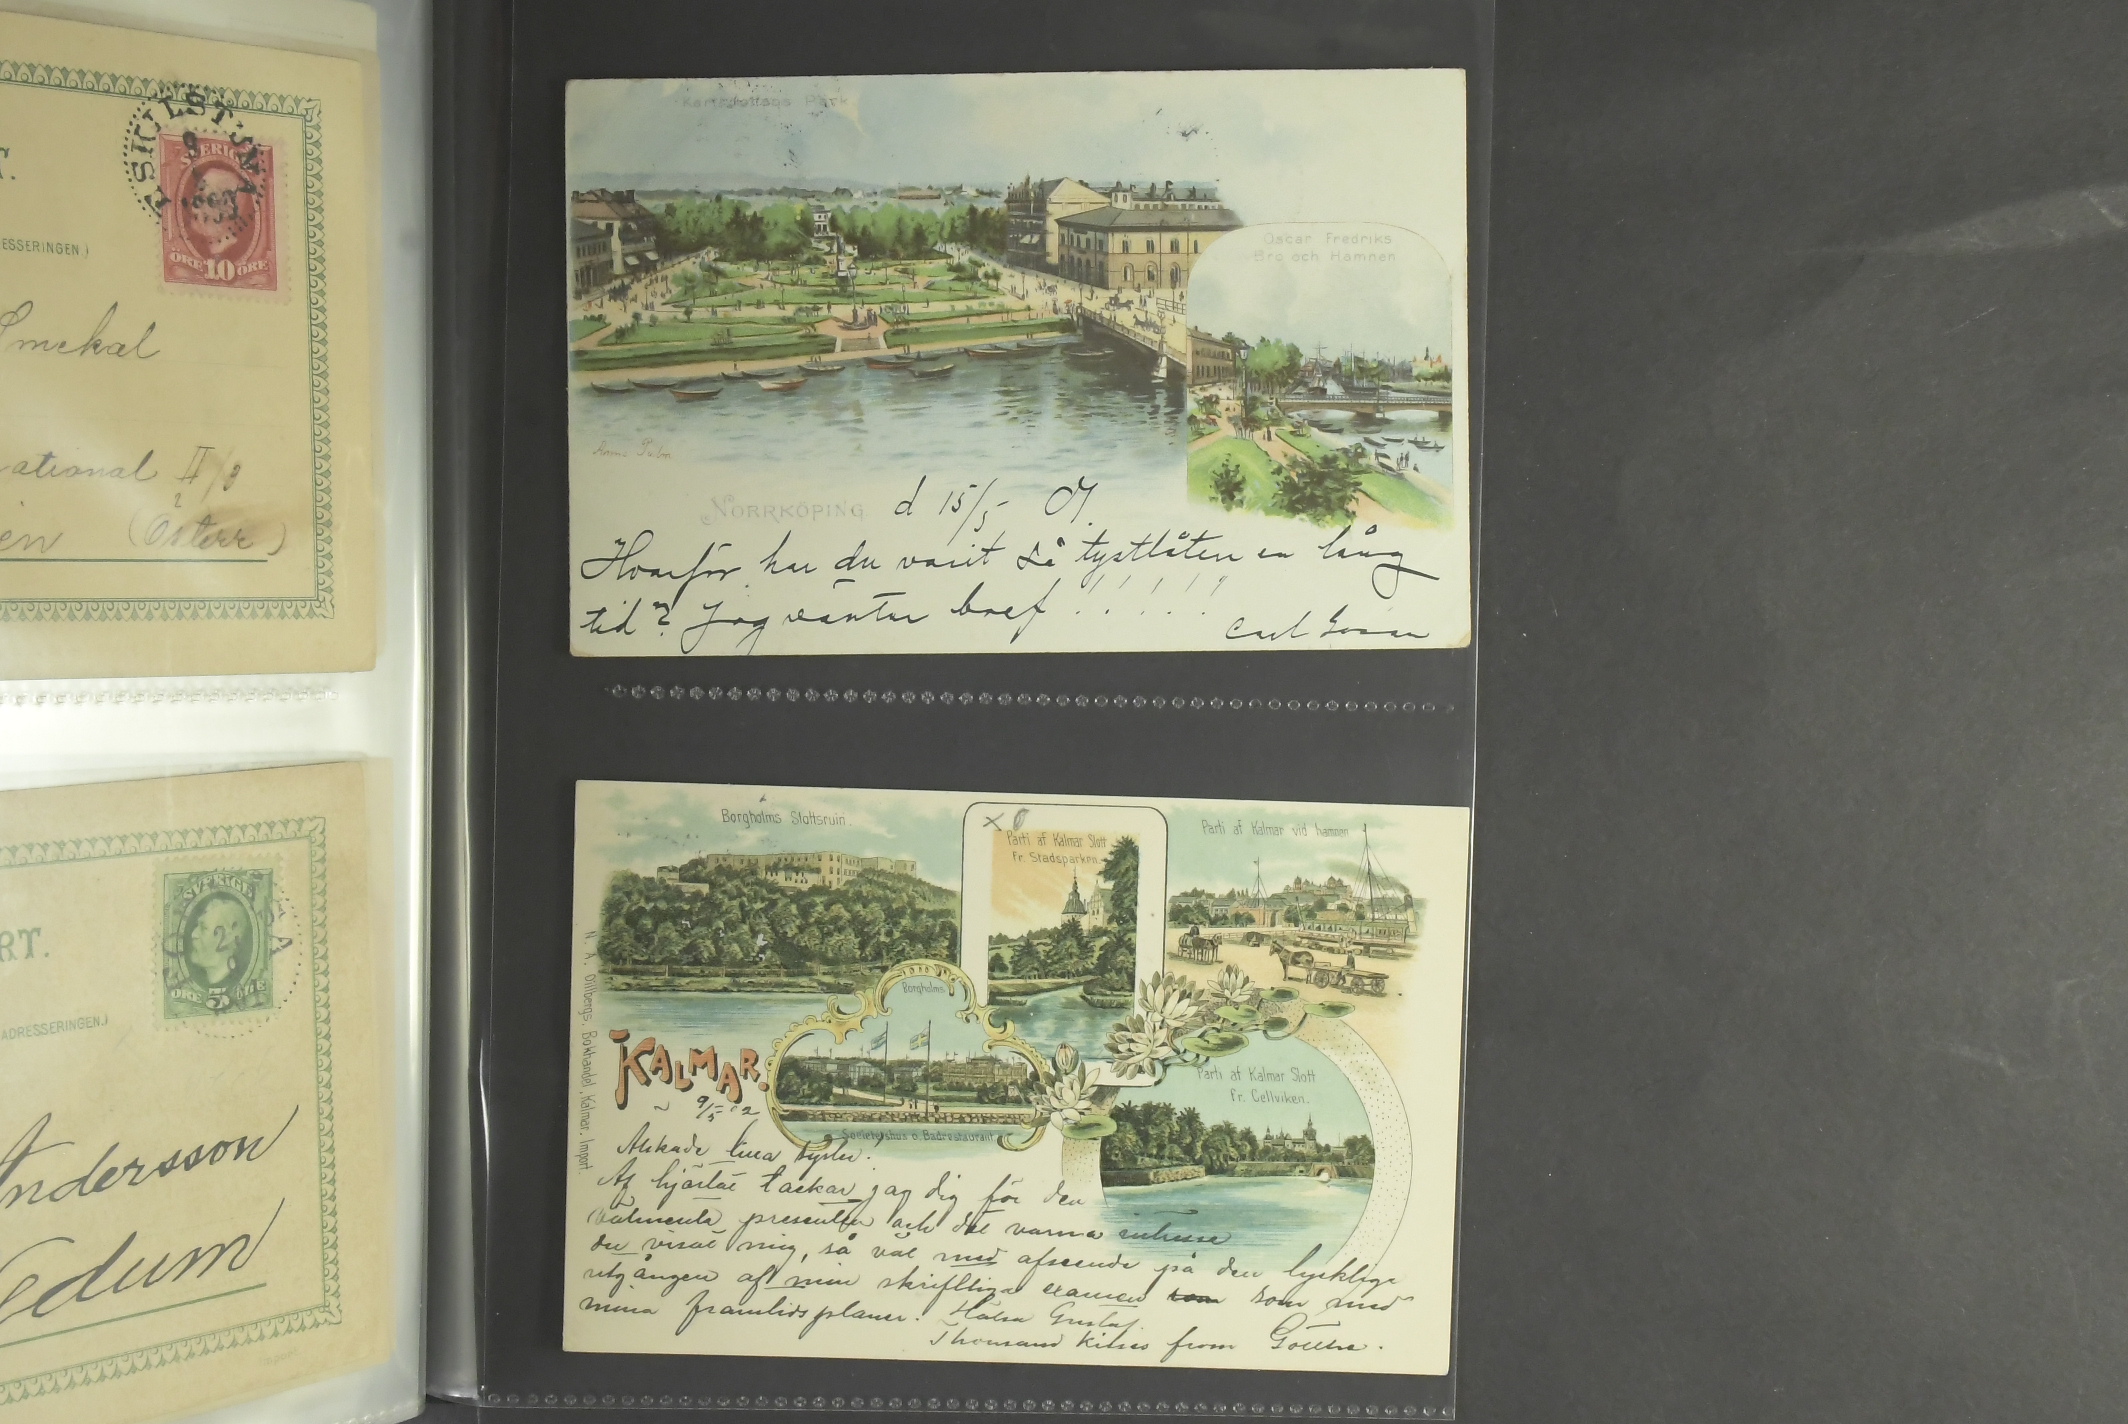 ESKILSTUNA
SVERIGE
ÖRE 10 ÖRE
T.
ESSERINGEN.)
Smekal
ational II/8
en (Österr)
SVERIGE
ÖRE 5 ÖRE
RT.
ADRESSERINGEN.)
Andersson
edum
Import
Karl Johans Park
Oscar Fredriks
Bro och Hamnen
Anna Palm
NORRKÖPING d 15/5 01
Hvarför har du varit så tystlåten en lång
tid? Jag väntar bref !!!!!
Carl Göran
Borgholms Slottsruin.
Parti af Kalmar Slott
Fr. Stadsparken.
Parti af Kalmar vid hamnen
Borgholms
Societetshus o. Badrestaurant
Parti af Kalmar Slott
fr. Cellviken.
N. A. Dillbergs, Bokhandel, Kalmar, Import.
KALMAR.
9/5 02
Älskade lilla syster!
Af hjärtat tackar jag dig för den
välmenta presenten och det varma intresse
du visat mig, så väl med afseende på den lyckliga
utgången af min skriftliga examen som med
mina framtidsplaner! Hälsa Gustaf.
Thousand kisses from Gösta.